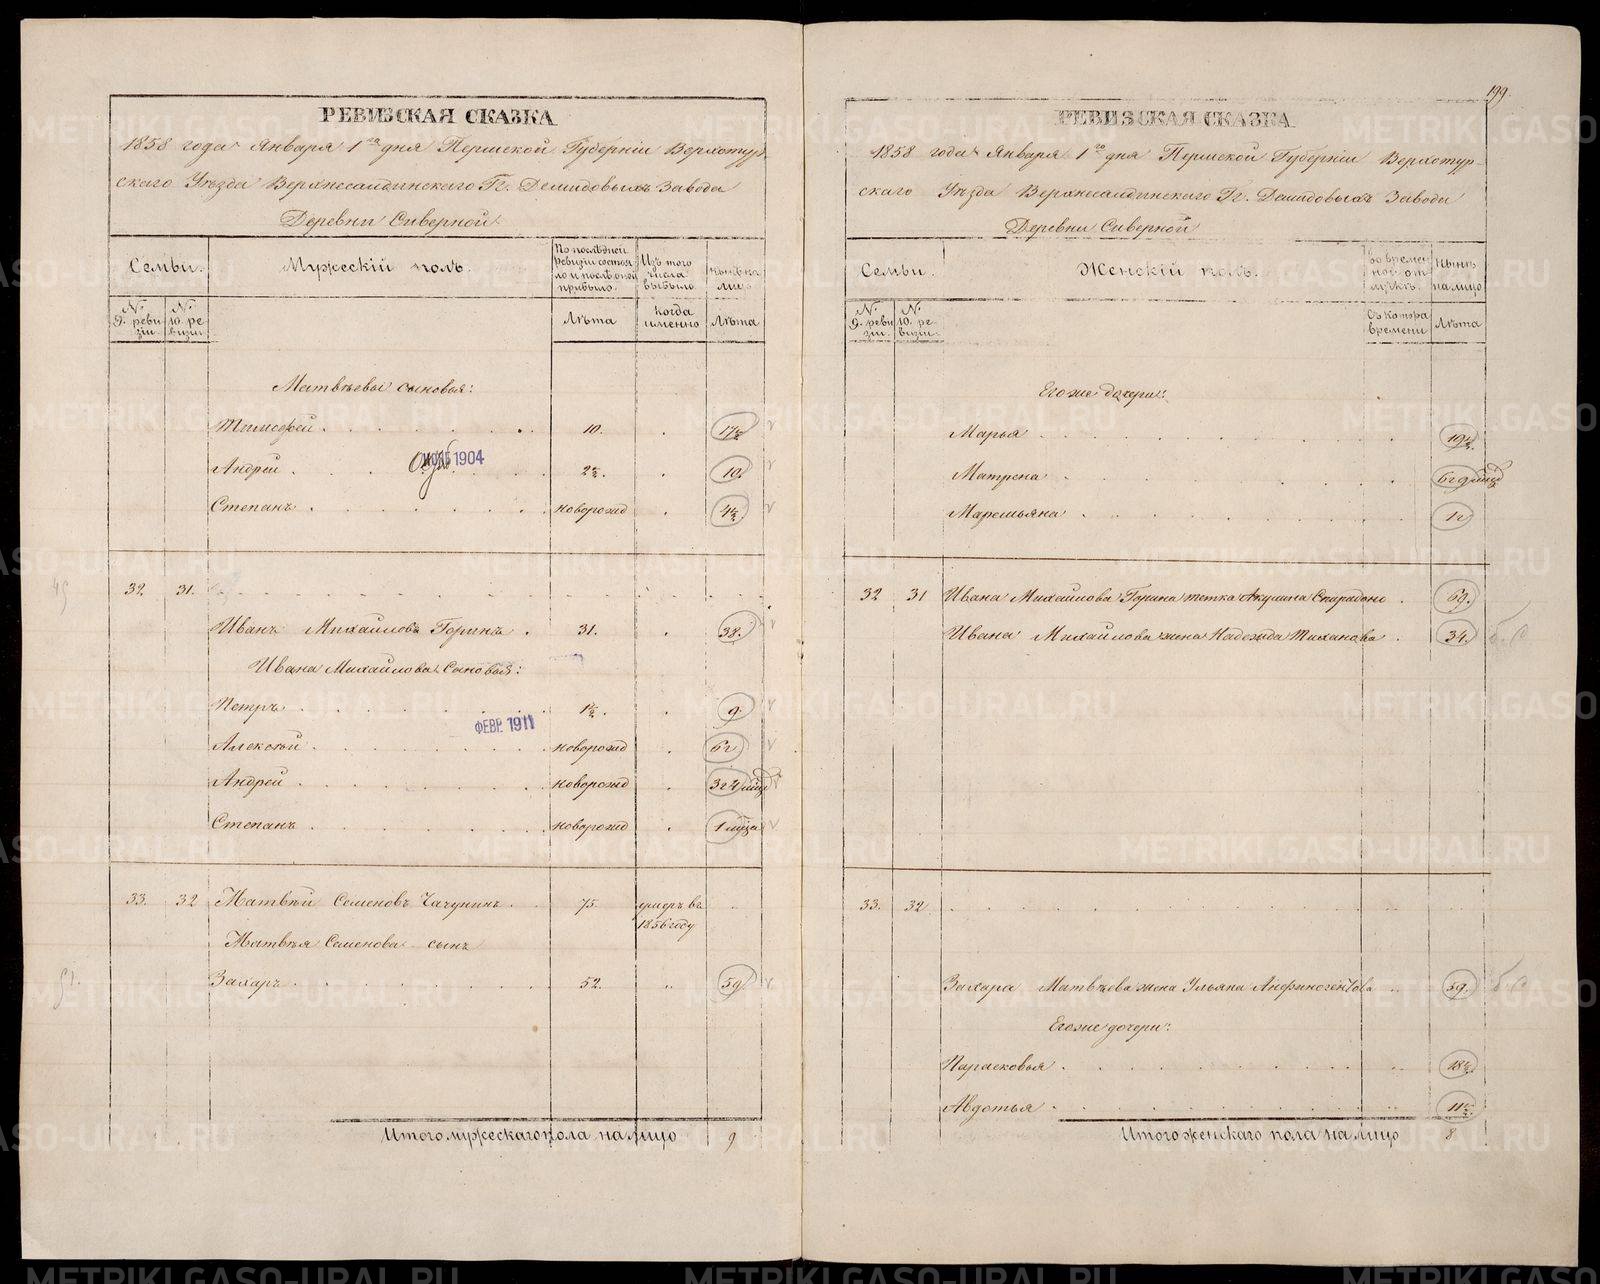 РЕВИЗСКАЯ СКАЗКА
1858 года Января 1го дня Пермской Губерніи Верхотур-
скаго Уѣзда Верхнесалдинскаго Гг. Демидовыхъ Завода
Деревни Сиверной
Семьи. Мужескій полъ. По послѣдней ревизіи состояло и послѣ оной прибыло. Изъ того числа выбыло. Нынѣ на лицо
№ 9. ревизіи № 10. ревизіи Лѣта Когда именно Лѣта
Матвѣевы сыновья:
Тимофей 10. 17½
Андрей 2½. 10.
НОЯБ 1904
Степанъ новорожд 4½
32 31.
Иванъ Михайловъ Горинъ. 31. 38.
Ивана Михайлова Сыновья:
Петръ 1½. 9.
ФЕВР 1911
Алексѣй новорожд 6 г
Андрей новорожд 3 г 4 мѣц
Степанъ новорожд 1 мѣца
33. 32 Матвѣй Семеновъ Чачунинъ. 75. умеръ въ
1856 году
Матвѣя Семенова сынъ
Захаръ 52. 59
Итого мужескаго пола на лицо 9
199.
РЕВИЗСКАЯ СКАЗКА
1858 года Января 1го дня Пермской Губерніи Верхотур-
скаго Уѣзда Верхнесалдинскаго Гг. Демидовыхъ Завода
Деревни Сиверной
Семьи. Женскій полъ. Во временной отлучкѣ. Нынѣ на лицо
№ 9. ревизіи № 10. ревизіи Съ котора времени Лѣта
Егоже дочери:
Марья 19½.
Матрена 6 г 9 мѣц
Маремьяна 1 г
32 31 Ивана Михайлова Горина тетка Акулина Спиридоно 69.
Ивана Михайлова жена Надежда Тиханова 34.
33. 32
Захара Матвѣева жена Ульяна Анфиногентова 59.
Егоже дочери:
Парасковья 18½
Авдотья 11½.
Итого женскаго пола на лицо 8
METRIKI.GASO-URAL.RU